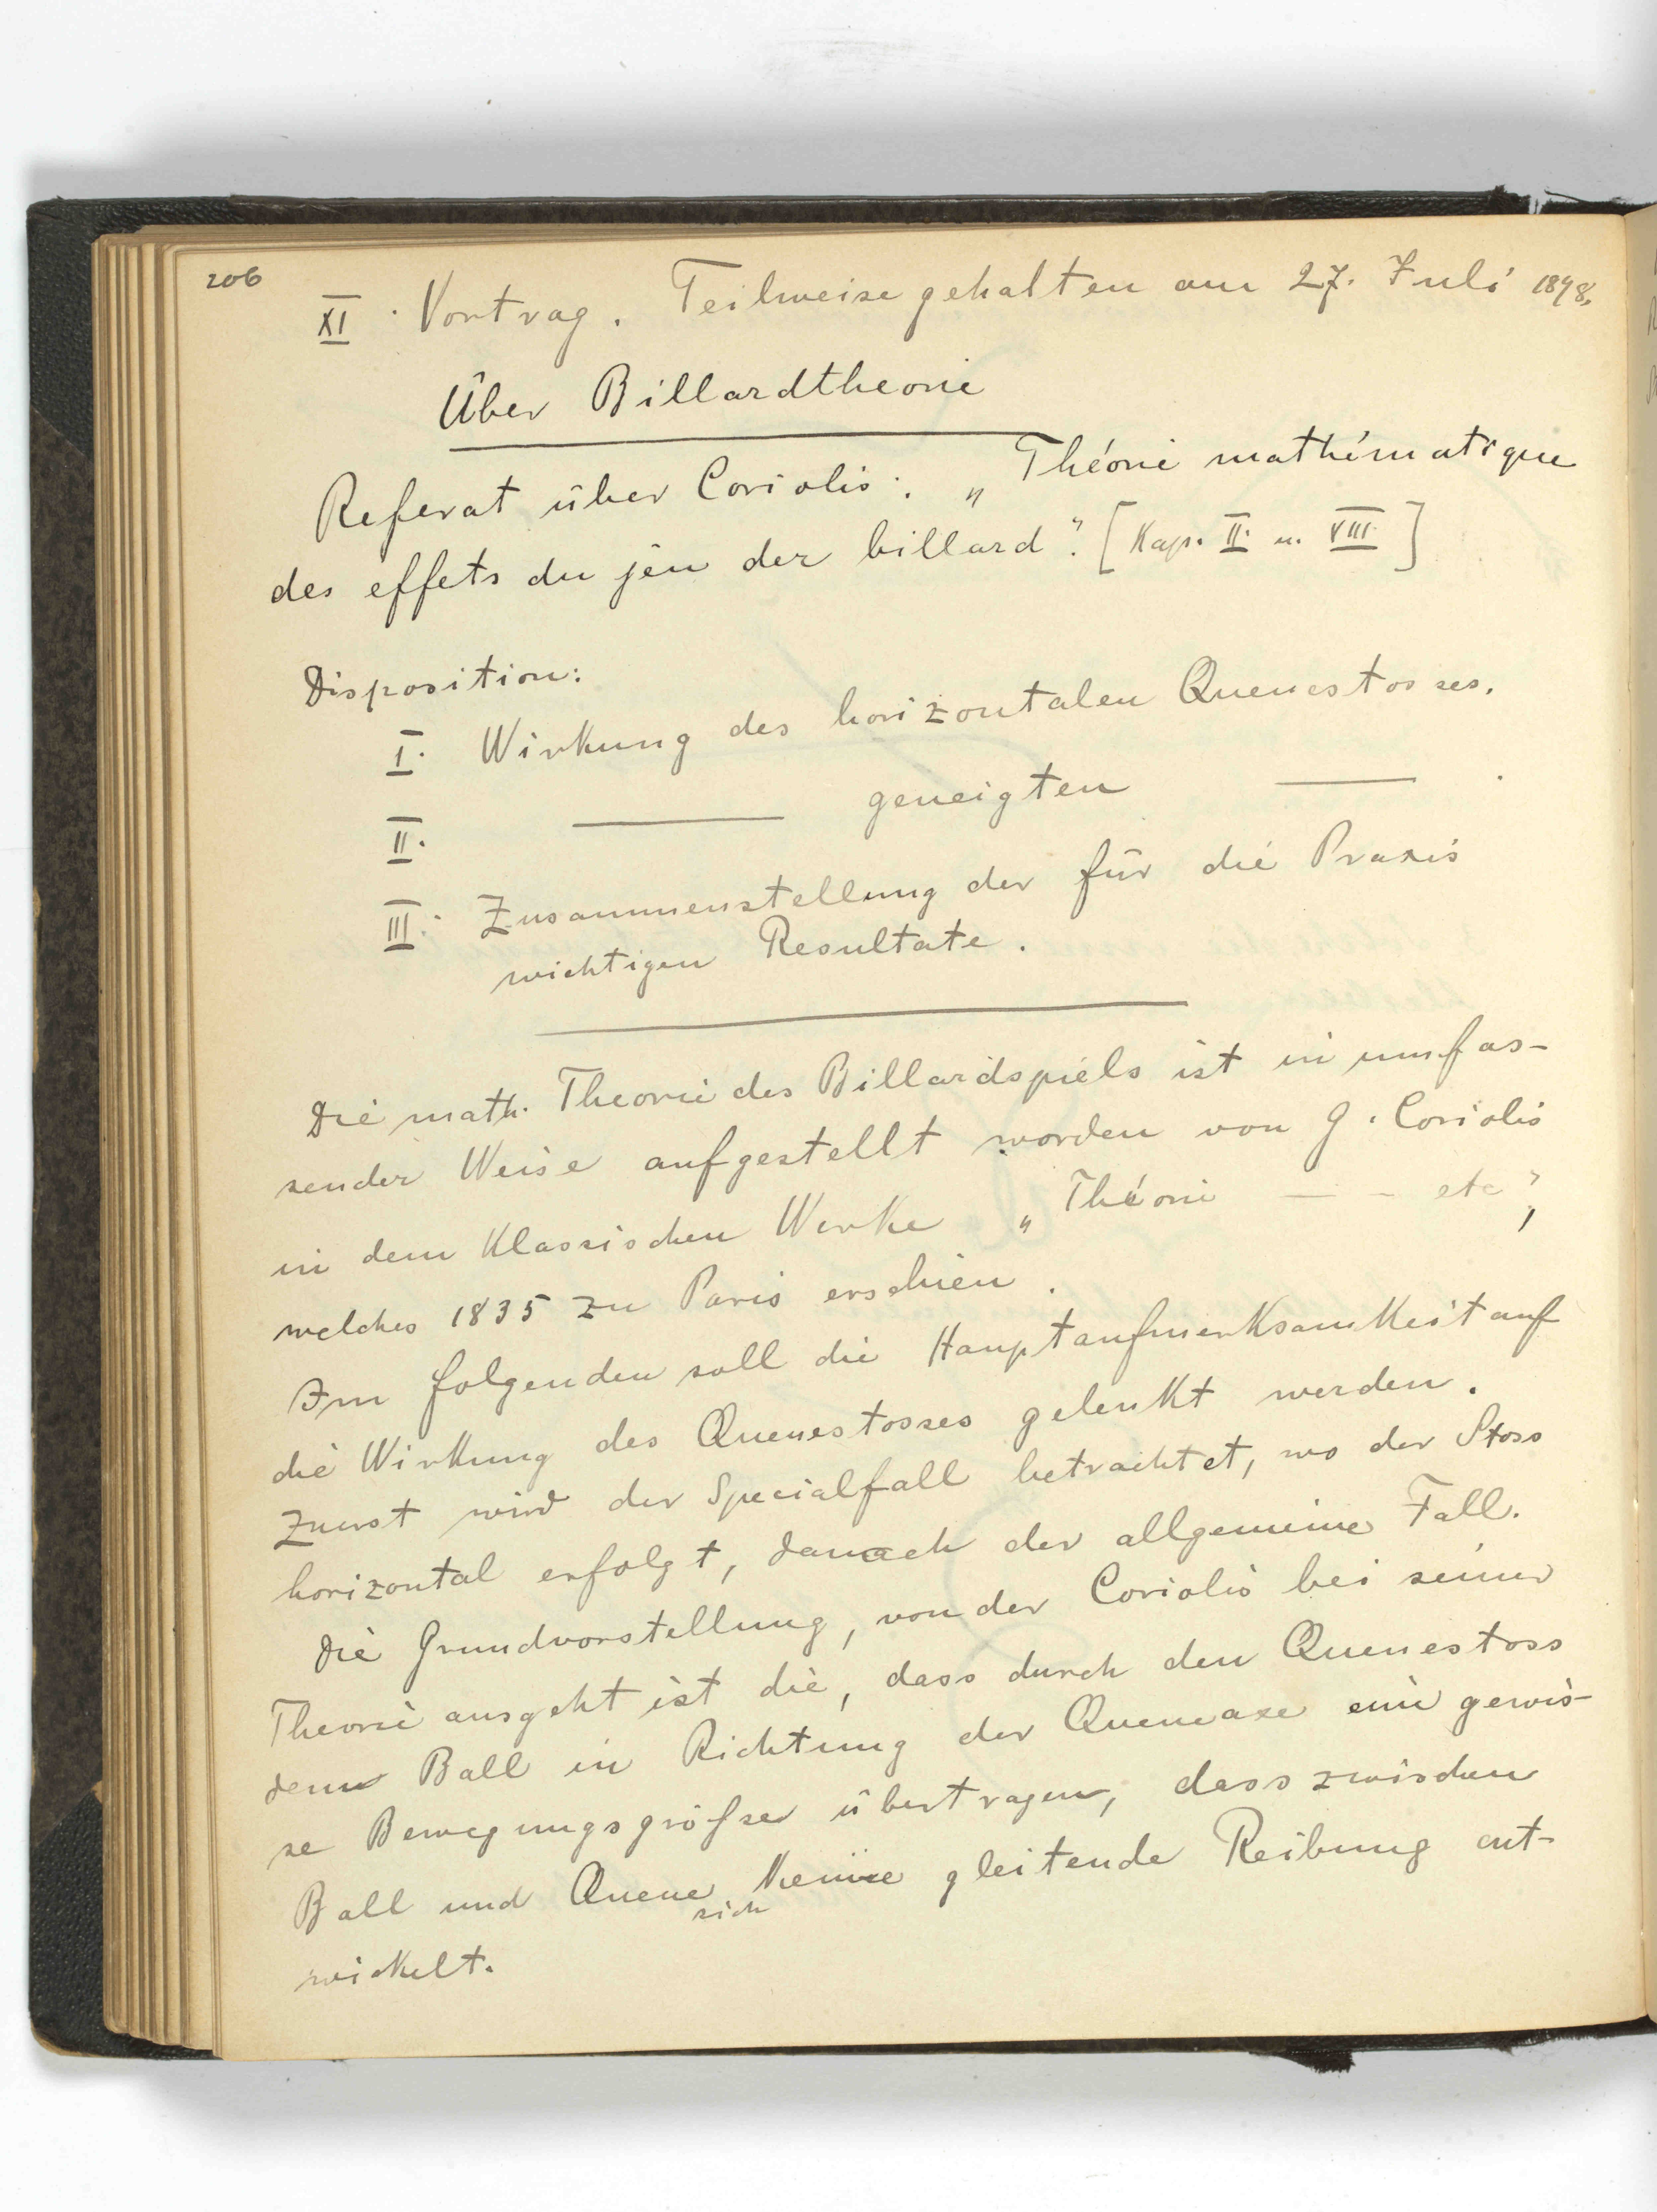 206
XI. Vortrag. Teilweise gehalten am 27. Juli 1898.
Über Billardtheorie
Referat über Coriolis: „Théorie mathématique
des effets du jeu der billard". [Kap. II. u. VIII.]
Disposition:
I. Wirkung des horizontalen Queuestosses.
II. ——— geneigten ——— .
III. Zusammenstellung der für die Praxis
wichtigen Resultate.
Die math. Theorie des Billardspiels ist in umfas-
sender Weise aufgestellt worden von G. Coriolis
in dem klassischen Werke „Théorie — - etc",
welches 1835 zu Paris erschien.
Im folgenden soll die Hauptaufmerksamkeit auf
die Wirkung des Queuestosses gelenkt werden.
Zuerst wird der Specialfall betrachtet, wo der Stoss
horizontal erfolgt, danach der allgemeine Fall.
Die Grundvorstellung, von der Coriolis bei seiner
Theorie ausgeht ist die, dass durch den Queuestoss
dem Ball in Richtung der Queueaxe eine gewis-
se Bewegungsgröfse übertragen, dass zwischen
Ball und Queue sich keine gleitende Reibung ent-
wickelt.